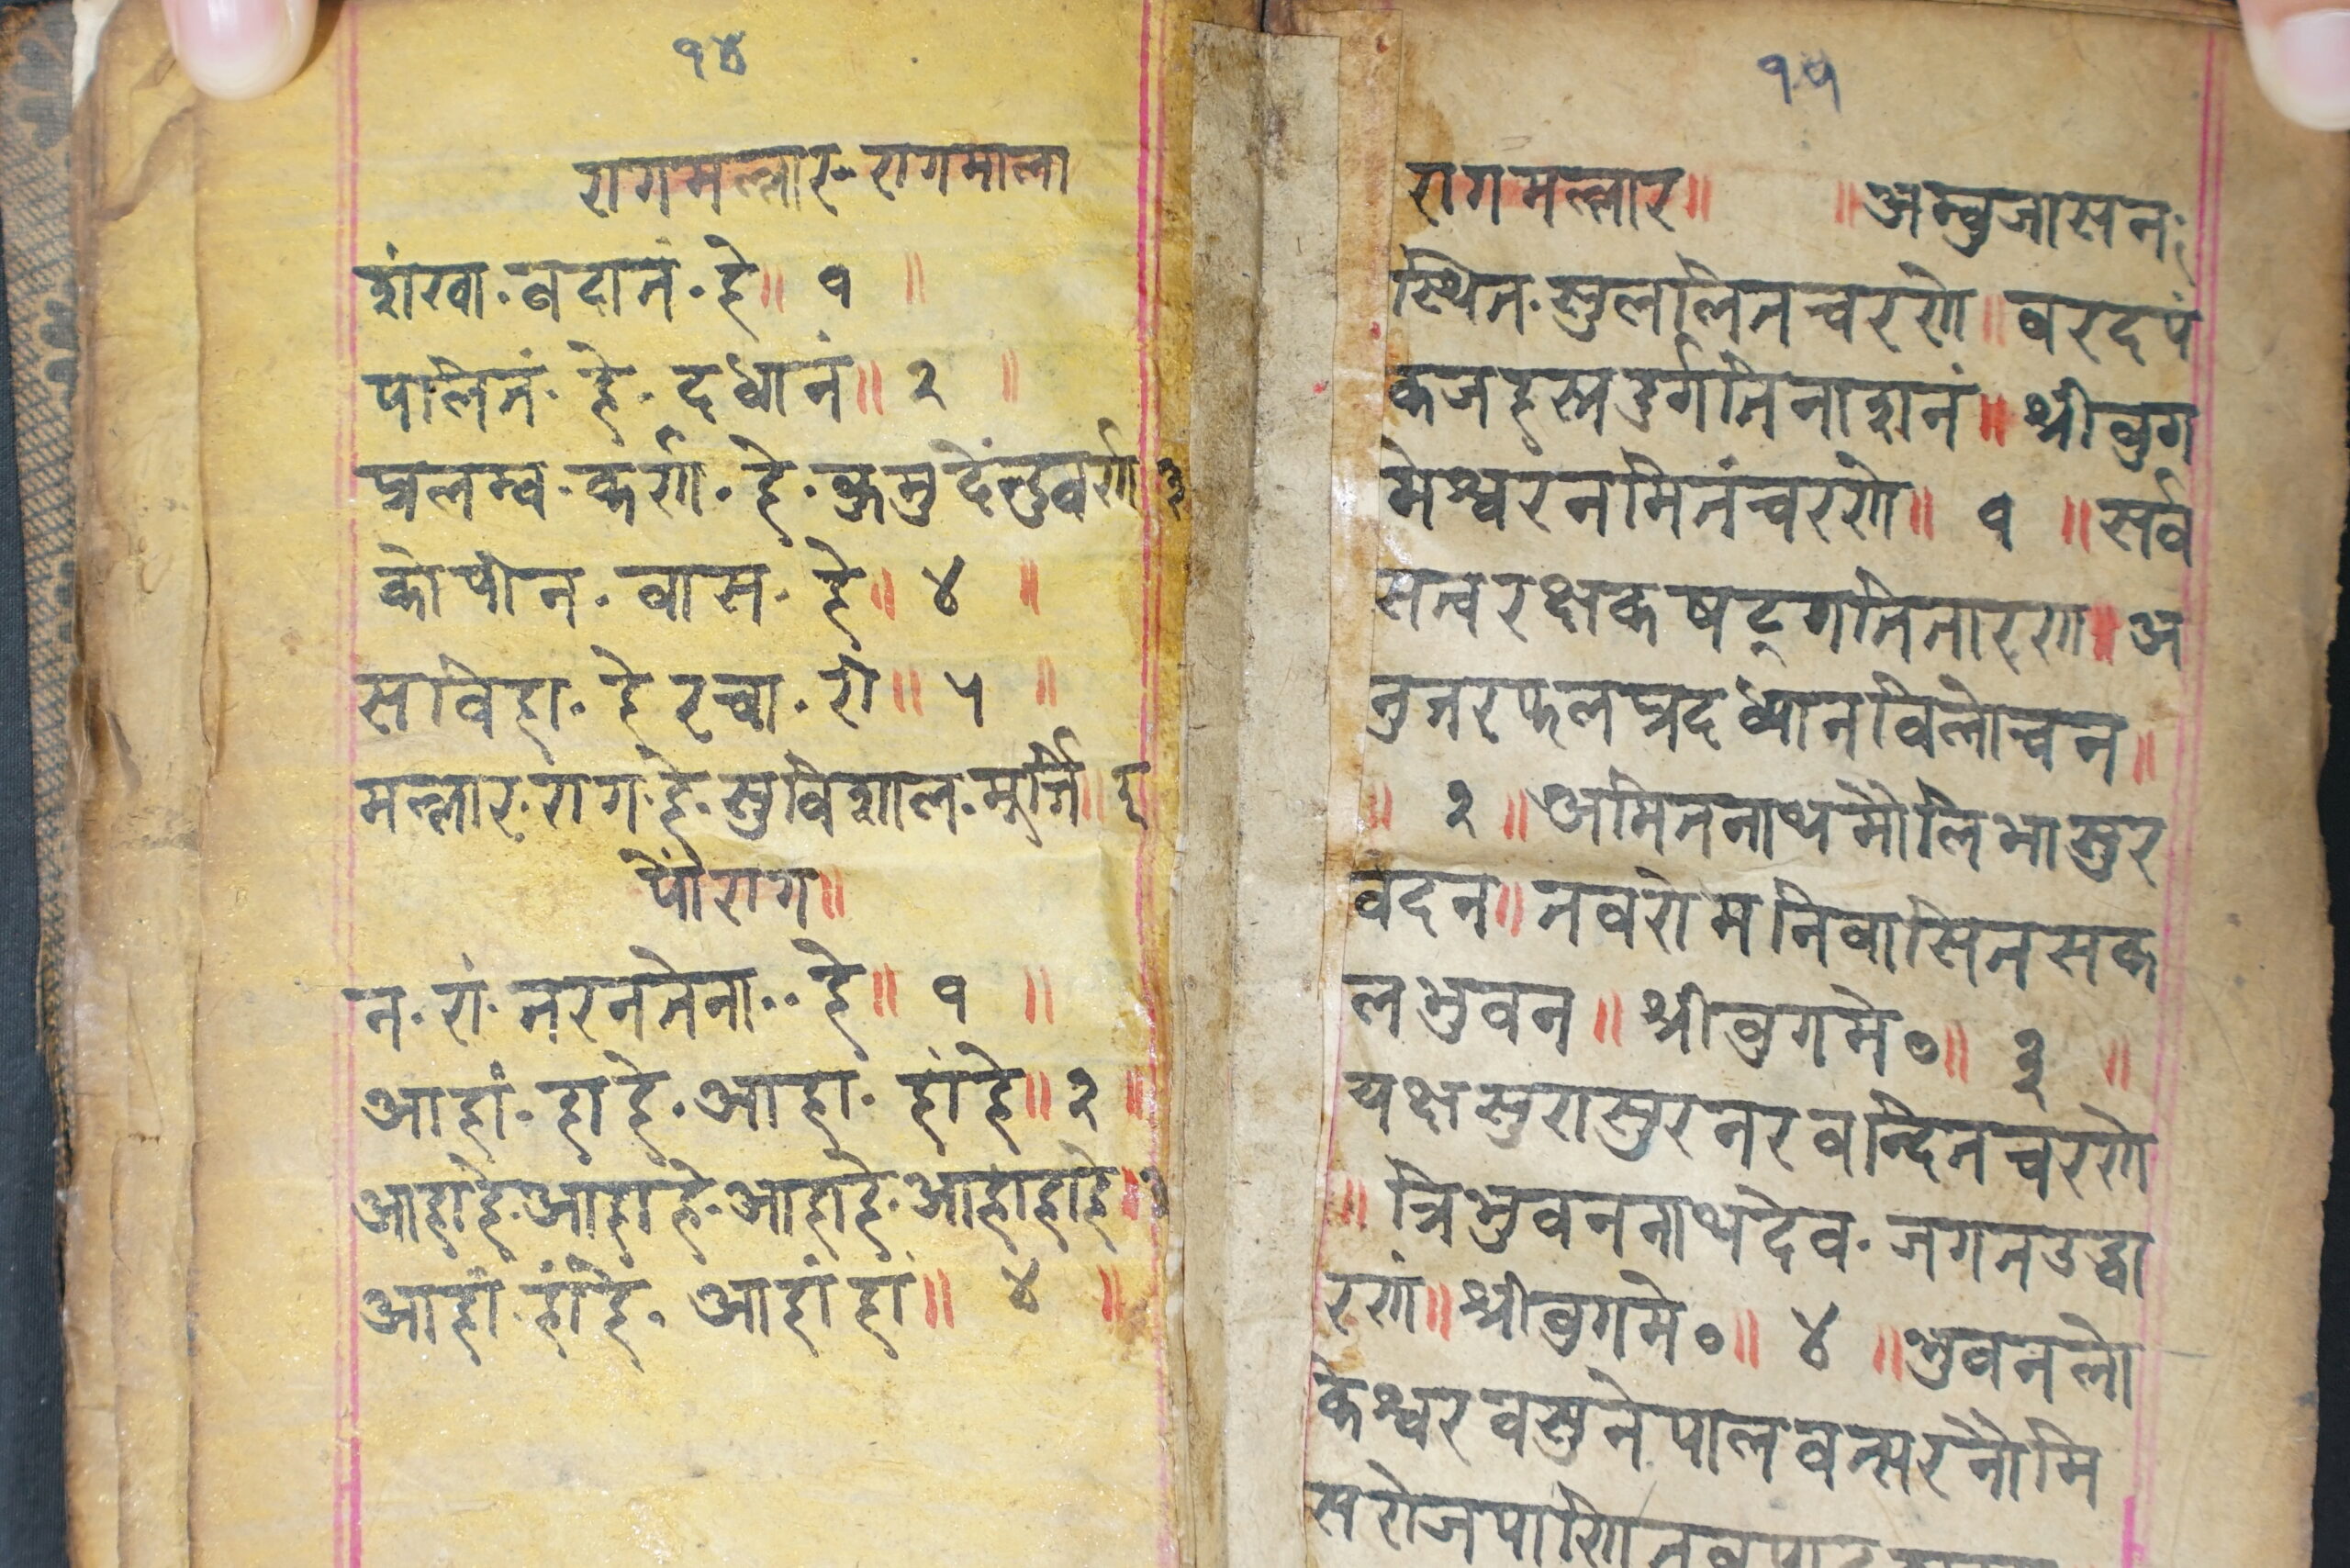 १४
रागमल्लार-रागमाला
शंखा·वदानं·हे॥ १ ॥
पालितं·हे·दधानं॥ २ ॥
प्रलम्व·कर्ण·हे·कुमुदेंदुवर्ण ३
कोपीन·वास·हे॥ ४ ॥
सविहा·हेरचा·री॥ ५ ॥
मल्लार·राग·हे·सुविशाल·मूर्त्ति॥ ६
पौंराग॥
न·रां·नरनतेना··हे॥ १ ॥
आहां·हाहे·आहा·हांहे॥ २ ॥
आहाहे·आंहाहे·आहाहे·आहाहाहे॥ ३
आहां·हांहें·आहांहां॥ ४ ॥
१५
रागमल्लार॥ ॥अम्वुजासनः
स्थित·सुललितचरणे॥वरदपं
कजहस्तदुर्गतिनाशनं॥श्रीवुग
मेश्वरंनमितंचरणे॥ १ ॥सर्व
सत्वरक्षकषट्गतितारण॥अ
नुत्तरफलप्रदध्यानविलोचन॥
॥ २ ॥अमितनाथमौलिभासुर
वदन॥नवरोमनिवासितसक
लभुवन॥श्रीवुगमे०॥ ३ ॥
यक्षसुरासुरनरवन्दितचरणे
॥त्रिभुवननाथदेव·जगतउद्धा
रणं॥श्रीवुगमे०॥ ४ ॥भुवनलो
केश्वरवसुनेपालवत्सरनौमि
सरोजपाणि